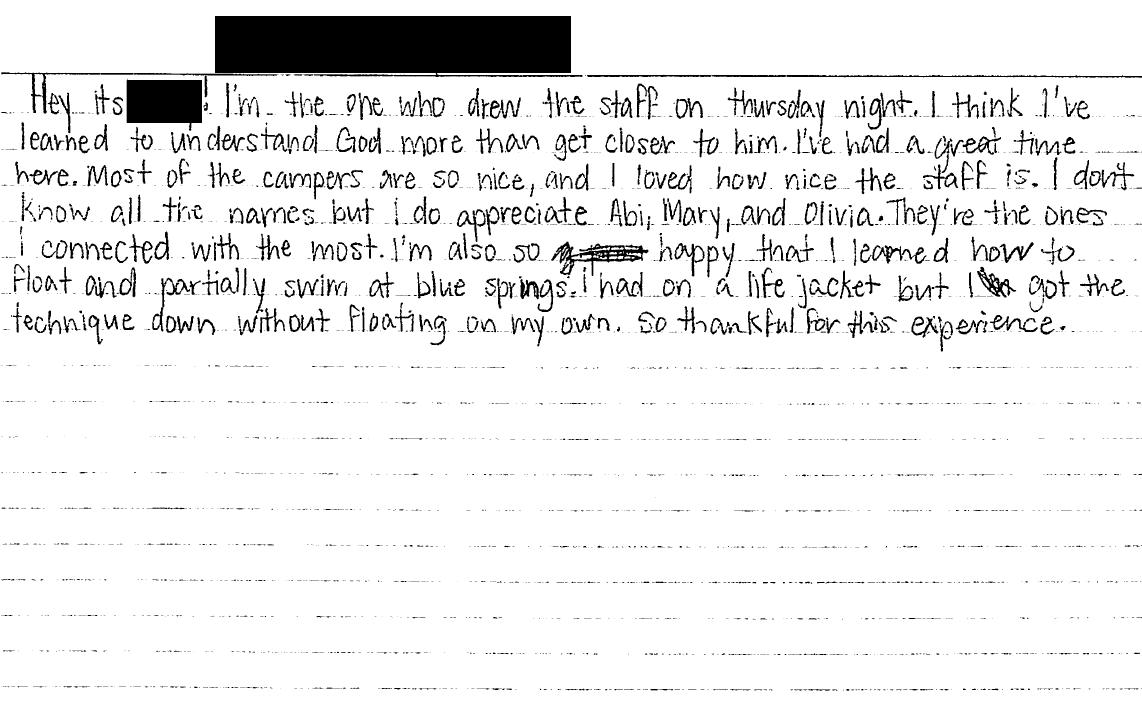 Hey its ! I'm the one who drew the staff on thursday night. I think I've
learned to understand God more than get closer to him. I've had a great time
here. Most of the campers are so nice, and I loved how nice the staff is. I don't
know all the names but I do appreciate Abi, Mary, and Olivia. They're the ones
i connected with the most. I'm also so happy that I learned how to
float and partially swim at blue springs. i had on a life jacket but I got the
technique down without floating on my own. So thankful for this experience.